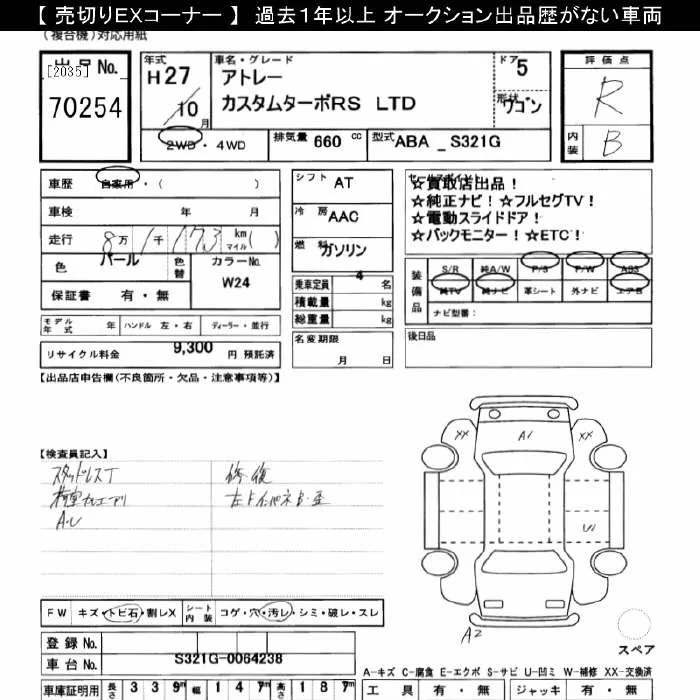 【 売切りEXコーナー 】 過去１年以上 オークション出品歴がない車両
（複合機）対応用紙
出品No.
[2035]
70254
年式
H27
10月
車名・グレード
アトレー
カスタムターボRS LTD
ドア
5
形状
ワゴン
評価点
R
内装
B
2WD・4WD
排気量 660 cc
型式 ABA _ S321G
車歴 自家用・（ ）
車検 年 月
走行 8万 1千 173 km マイル ( )
色 パール
色替
カラーNo.
W24
保証書 有・無
シフト AT
冷房 AAC
燃料 ガソリン
セールスポイント
☆買取店出品！
☆純正ナビ！☆フルセグTV！
☆電動スライドドア！
☆バックモニター！☆ETC！
乗車定員 4 名
積載量 kg
総重量 kg
装備品
S/R 純A/W P/S P/W ABS
純TV 純ナビ 革シート 外ナビ エアB
ナビ型番：
モデル年式 年 ハンドル 左・右 ディーラー・並行
リサイクル料金 9,300 円 預託済
名変期限
月 日
後日品
【出品店申告欄(不良箇所・欠品・注意事項等)】
【検査員記入】
スタッドレスT
荷室カエアリ
A・U
修復
左Fインパネ B・歪
XX A1 XX
U1
A2
スペア
FW キズ・トビ石・割レX
シート内装 コゲ・穴・汚レ・シミ・破レ・スレ
登録No.
車台No. S321G-0064238
A-キズ C-腐食 E-エクボ S-サビ U-凹ミ W-補修 X-交換済
車庫証明用 長さ 3 3 9 m 幅 1 4 7 m 高さ 1 8 7 m
工具 有・無 ジャッキ 有・無